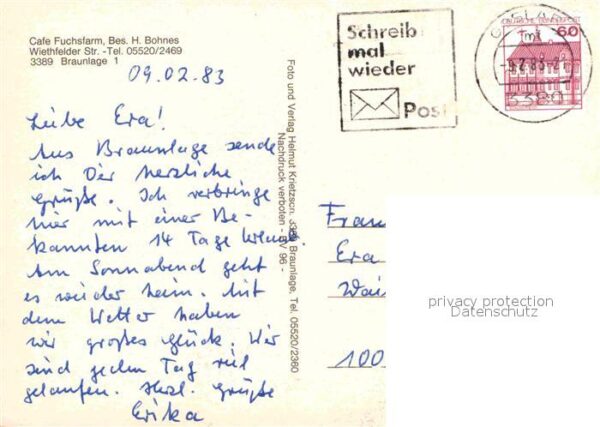 Cafe Fuchsfarm, Bes. H. Bohnes
Wiethfelder Str. -Tel. 05520/2469
3389 Braunlage 1
09.02.83
Liebe Eva!
Aus Braunlage sende
ich Dir herzliche
Grüße. Ich verbringe
hier mit einer Be-
kannten 14 Tage
Am Sonnabend geht
es wieder heim. Mit
dem Wetter haben
wir großes Glück. Wir
sind jeden Tag viel
gelaufen. Herzl. Grüße
Erika
Foto und Verlag Helmut Krietzsch, Braunlage, Tel. 05520/2360
Nachdruck verboten - 96 -
Schreib
mal
wieder
Post
DEUTSCHE BUNDESPOST
60
3389
Frau
Eva
100
privacy protection
Datenschutz